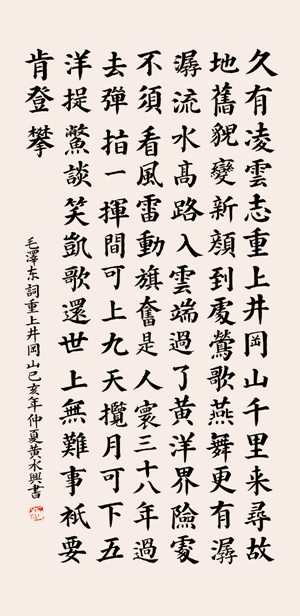 久有凌雲志重上井岡山千里来尋故
地舊貌變新顔到處鶯歌燕舞更有潺
潺流水髙路入雲端過了黄洋界險處
不須看風雷動旗奮是人寰三十八年過
去彈指一揮間可上九天攬月可下五
洋捉鱉談笑凱歌還世上無難事衹要
肯登攀
毛澤东詞重上井岡山己亥年仲夏黄水興書